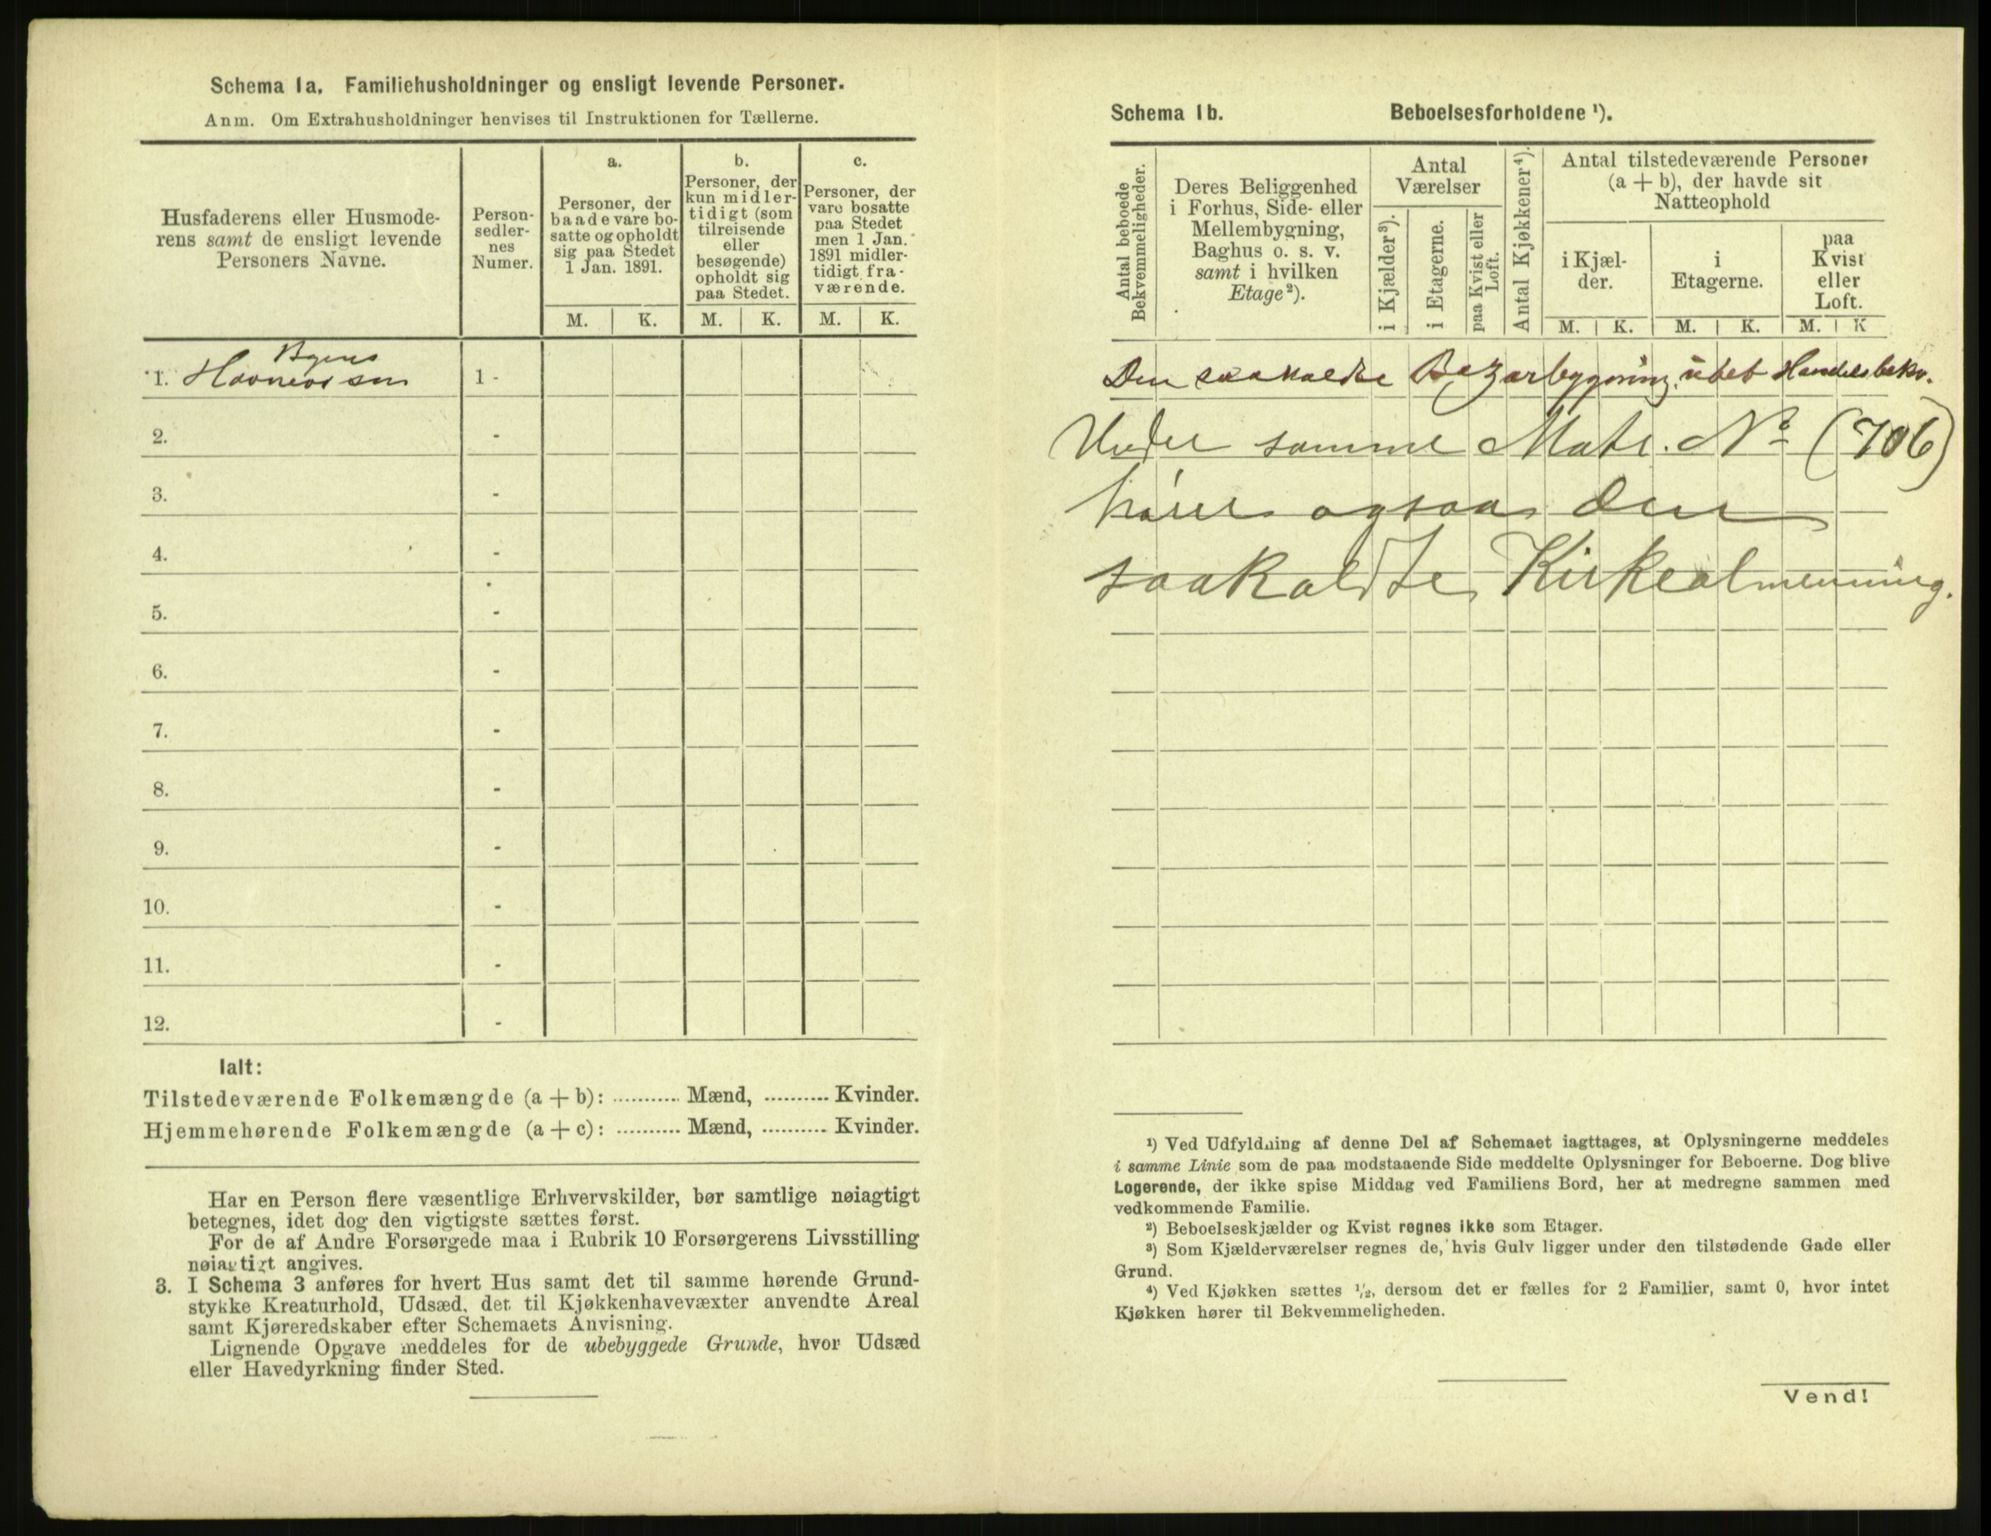 Schema 1a. Familiehusholdninger og ensligt levende Personer.
Anm. Om Extrahusholdninger henvises til Instruktionen for Tællerne.
Husfaderens eller Husmode-
rens samt de ensligt levende
Personers Navne.
Person-
sedler-
nes
Numer.
a.
Personer, der
baade vare bo-
satte og opholdt
sig paa Stedet
1 Jan. 1891.
b.
Personer, der
kun midler-
tidigt (som
tilreisende
eller
besøgende)
opholdt sig
paa Stedet.
c.
Personer, der
vare bosatte
paa Stedet
men 1 Jan.
1891 midler-
tidigt fra-
værende.
M. K. M. K. M. K.
Byens
1. 1 -
2. -
3. -
4. -
5. -
6. -
7. -
8. -
9. -
10. -
11. -
12. -
Ialt:
Tilstedeværende Folkemængde (a + b): ........... Mænd, ........... Kvinder.
Hjemmehørende Folkemængde (a + c): ........... Mænd, ........... Kvinder.
Har en Person flere væsentlige Erhvervskilder, bør samtlige nøiagtigt
betegnes, idet dog den vigtigste sættes først.
For de af Andre Forsørgede maa i Rubrik 10 Forsørgerens Livsstilling
nøiagtigt angives.
3. I Schema 3 anføres for hvert Hus samt det til samme hørende Grund-
stykke Kreaturhold, Udsæd, det til Kjøkkenhavevæxter anvendte Areal
samt Kjøreredskaber efter Schemaets Anvisning.
Lignende Opgave meddeles for de ubebyggede Grunde, hvor Udsæd
eller Havedyrkning finder Sted.
Schema 1b. Beboelsesforholdene ¹).
Antal beboede
Bekvemmeligheder.
Deres Beliggenhed
i Forhus, Side- eller
Mellembygning,
Baghus o. s. v.
samt i hvilken
Etage²).
Antal
Værelser
i Kjælder³).
i Etagerne.
paa Kvist eller
Loft.
Antal Kjøkkener⁴).
Antal tilstedeværende Personer
(a + b), der havde sit
Natteophold
i Kjæl-
der.
i
Etagerne.
paa
Kvist
eller
Loft.
M. K. M. K. M. K
Den saakaldte Bazarbygning, Handelsbekv.
Under samme Matr. Nº (706)
hører ogsaa den
saakaldte Kirkealmenning.
¹) Ved Udfyldning af denne Del af Schemaet iagttages, at Oplysningerne meddeles
i samme Linie som de paa modstaaende Side meddelte Oplysninger for Beboerne. Dog blive
Logerende, der ikke spise Middag ved Familiens Bord, her at medregne sammen med
vedkommende Familie.
²) Beboelseskjælder og Kvist regnes ikke som Etager.
³) Som Kjælderværelser regnes de, hvis Gulv ligger under den tilstødende Gade eller
Grund.
⁴) Ved Kjøkken sættes ½, dersom det er fælles for 2 Familier, samt 0, hvor intet
Kjøkken hører til Bekvemmeligheden.
Vend!